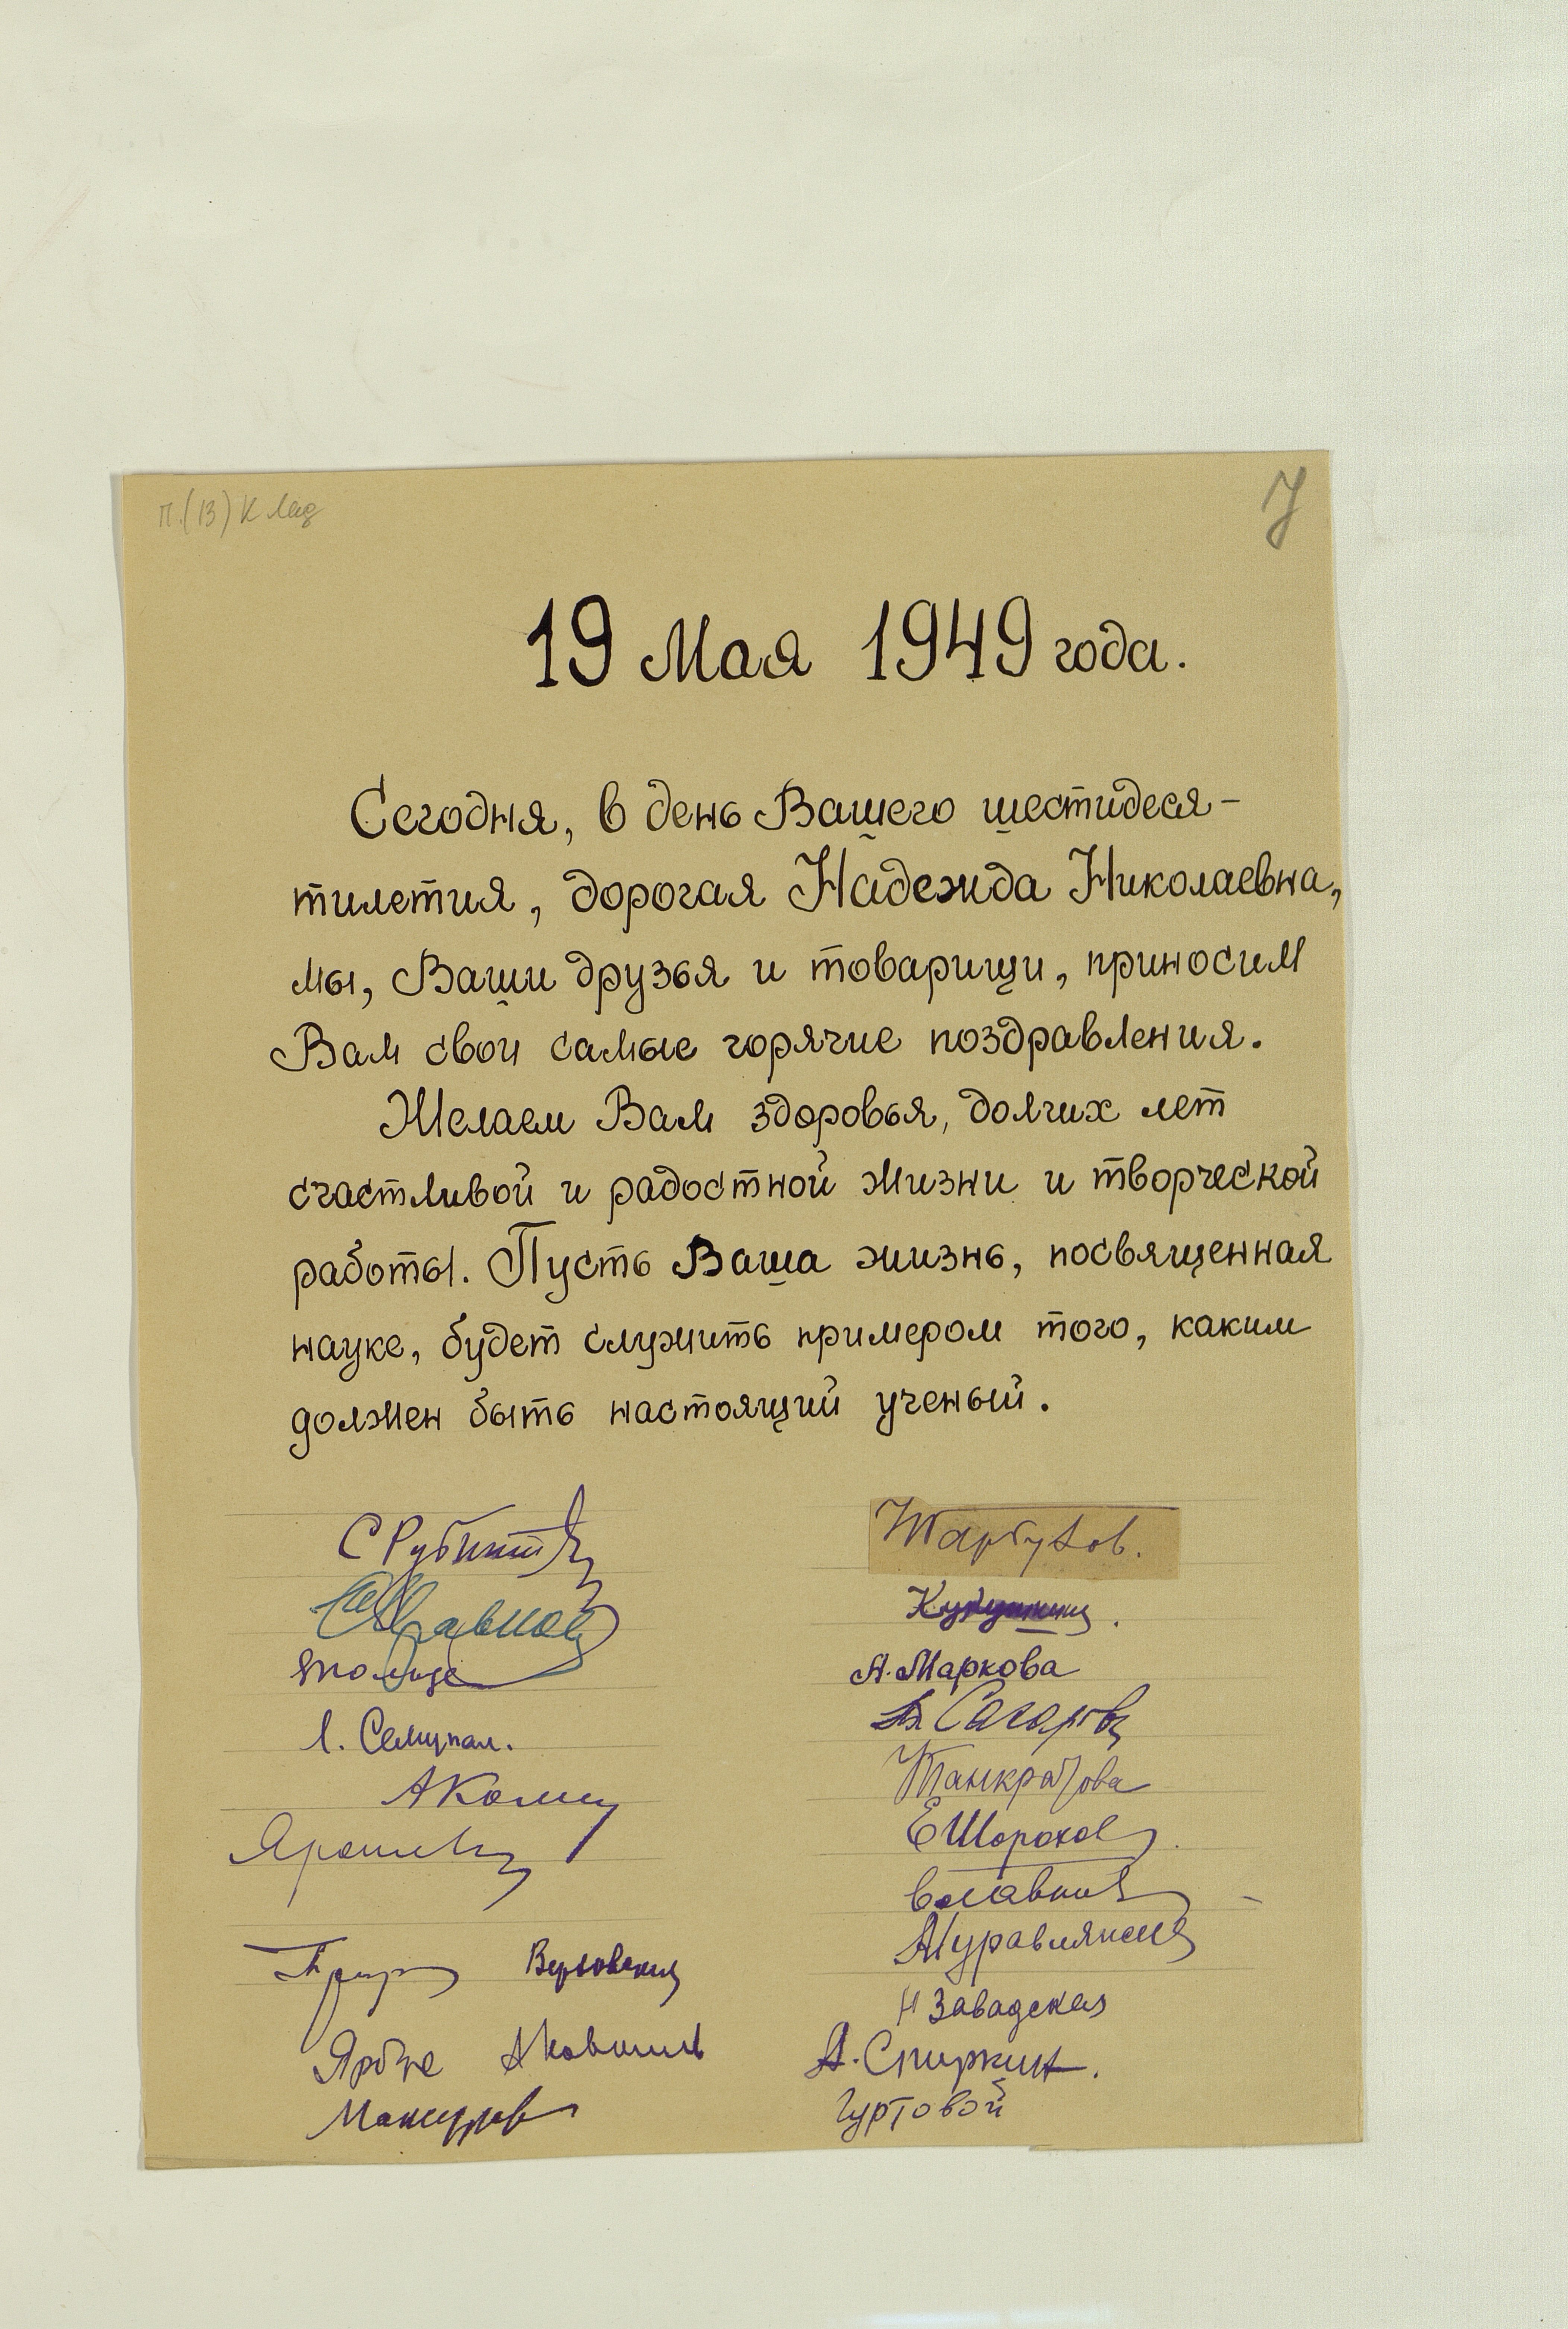 7
19 Мая 1949 года.
Сегодня, в день Вашего шестидеся-
тилетия, дорогая Надежда Николаевна,
мы, Ваши друзья и товарищи, приносим
Вам свои самые горячие поздравления.
Желаем Вам здоровья, долгих лет
счастливой и радостной жизни и творческой
работы. Пусть Ваша жизнь, посвященная
науке, будет служить примером того, каким
должен быть настоящий ученый.
С Рубинштейн
А. Маркова
Панкратова
Е Шорохов
Журавлянский
Н Завадская
А. Спиркин.
Гуртовой